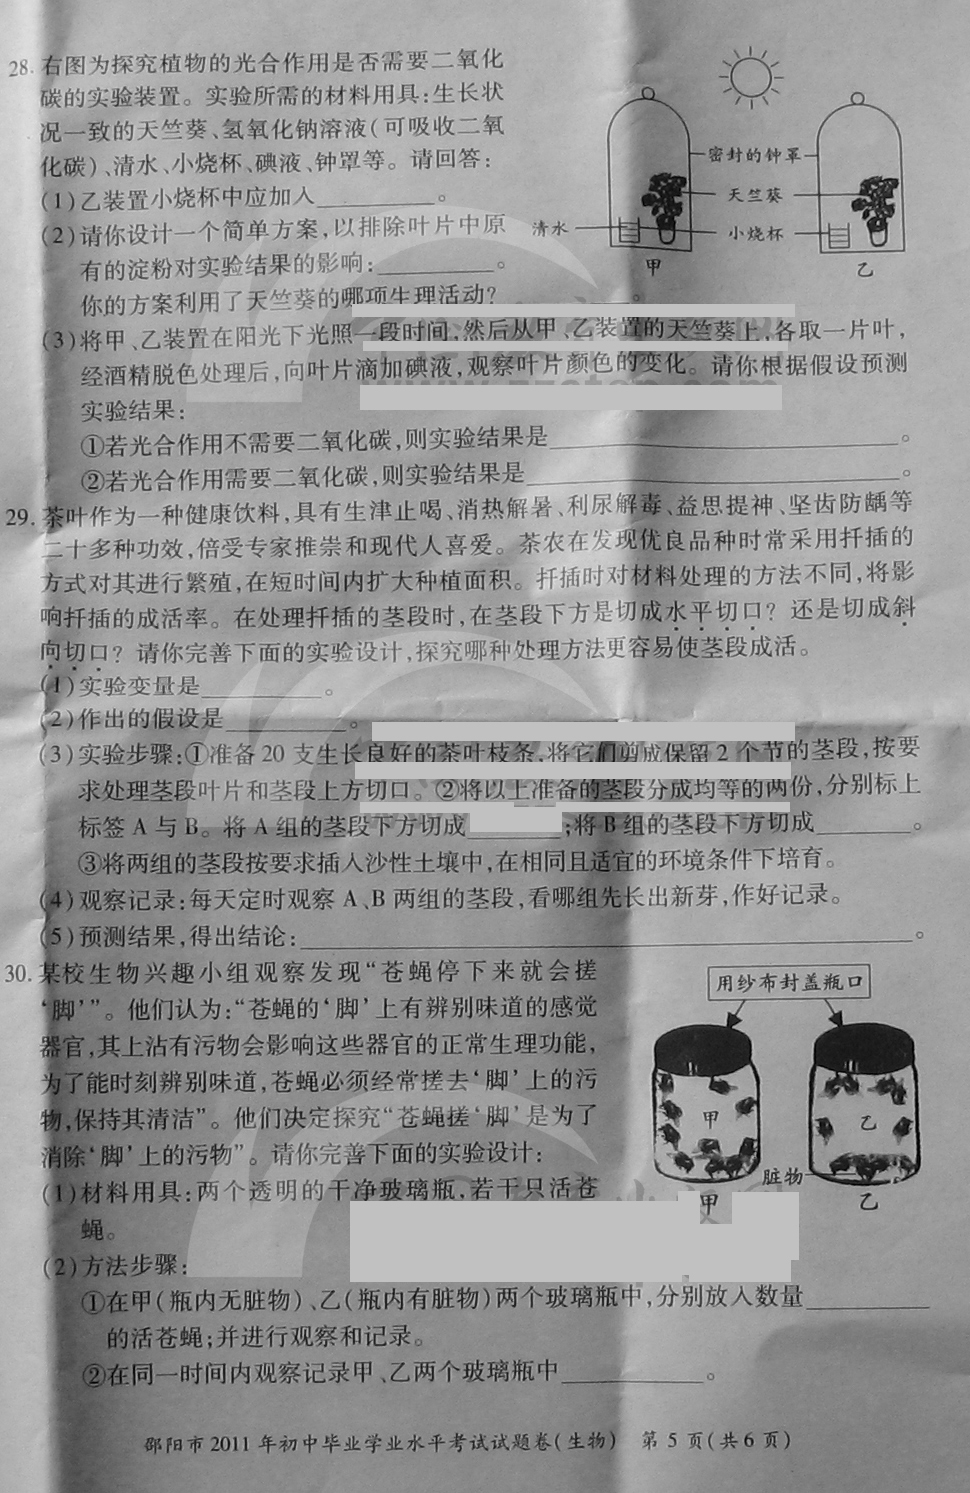 28. 右图为探究植物的光合作用是否需要二氧化
碳的实验装置。实验所需的材料用具:生长状
况一致的天竺葵、氢氧化钠溶液(可吸收二氧
化碳)、清水、小烧杯、碘液、钟罩等。请回答:
(1)乙装置小烧杯中应加入__________。
(2)请你设计一个简单方案,以排除叶片中原
有的淀粉对实验结果的影响:__________。
你的方案利用了天竺葵的哪项生理活动?
密封的钟罩
天竺葵
清水
小烧杯
甲
乙
(3)将甲、乙装置在阳光下光照一段时间,然后从甲、乙装置的天竺葵上,各取一片叶,
经酒精脱色处理后,向叶片滴加碘液,观察叶片颜色的变化。请你根据假设预测
实验结果:
①若光合作用不需要二氧化碳,则实验结果是__________。
②若光合作用需要二氧化碳,则实验结果是__________。
29. 茶叶作为一种健康饮料,具有生津止喝、消热解暑、利尿解毒、益思提神、坚齿防龋等
二十多种功效,倍受专家推崇和现代人喜爱。茶农在发现优良品种时常采用扦插的
方式对其进行繁殖,在短时间内扩大种植面积。扦插时对材料处理的方法不同,将影
响扦插的成活率。在处理扦插的茎段时,在茎段下方是切成水平切口?还是切成斜
向切口?请你完善下面的实验设计,探究哪种处理方法更容易使茎段成活。
(1)实验变量是__________。
(2)作出的假设是__________。
(3)实验步骤:①准备20支生长良好的茶叶枝条,将它们剪成保留2个节的茎段,按要
求处理茎段叶片和茎段上方切口。②将以上准备的茎段分成均等的两份,分别标上
标签A与B。将A组的茎段下方切成 ;将B组的茎段下方切成__________。
③将两组的茎段按要求插入沙性土壤中,在相同且适宜的环境条件下培育。
(4)观察记录:每天定时观察A、B两组的茎段,看哪组先长出新芽,作好记录。
(5)预测结果,得出结论:__________。
30. 某校生物兴趣小组观察发现“苍蝇停下来就会搓
‘脚’”。他们认为:“苍蝇的‘脚’上有辨别味道的感觉
器官,其上沾有污物会影响这些器官的正常生理功能,
为了能时刻辨别味道,苍蝇必须经常搓去‘脚’上的污
物,保持其清洁”。他们决定探究“苍蝇搓‘脚’是为了
消除‘脚’上的污物”。请你完善下面的实验设计:
(1)材料用具:两个透明的干净玻璃瓶,若干只活苍
蝇。
用纱布封盖瓶口
甲
乙
脏物
甲
乙
(2)方法步骤:
①在甲(瓶内无脏物)、乙(瓶内有脏物)两个玻璃瓶中,分别放入数量__________
的活苍蝇;并进行观察和记录。
②在同一时间内观察记录甲、乙两个玻璃瓶中__________。
邵阳市2011年初中毕业学业水平考试试题卷(生物) 第5页(共6页)